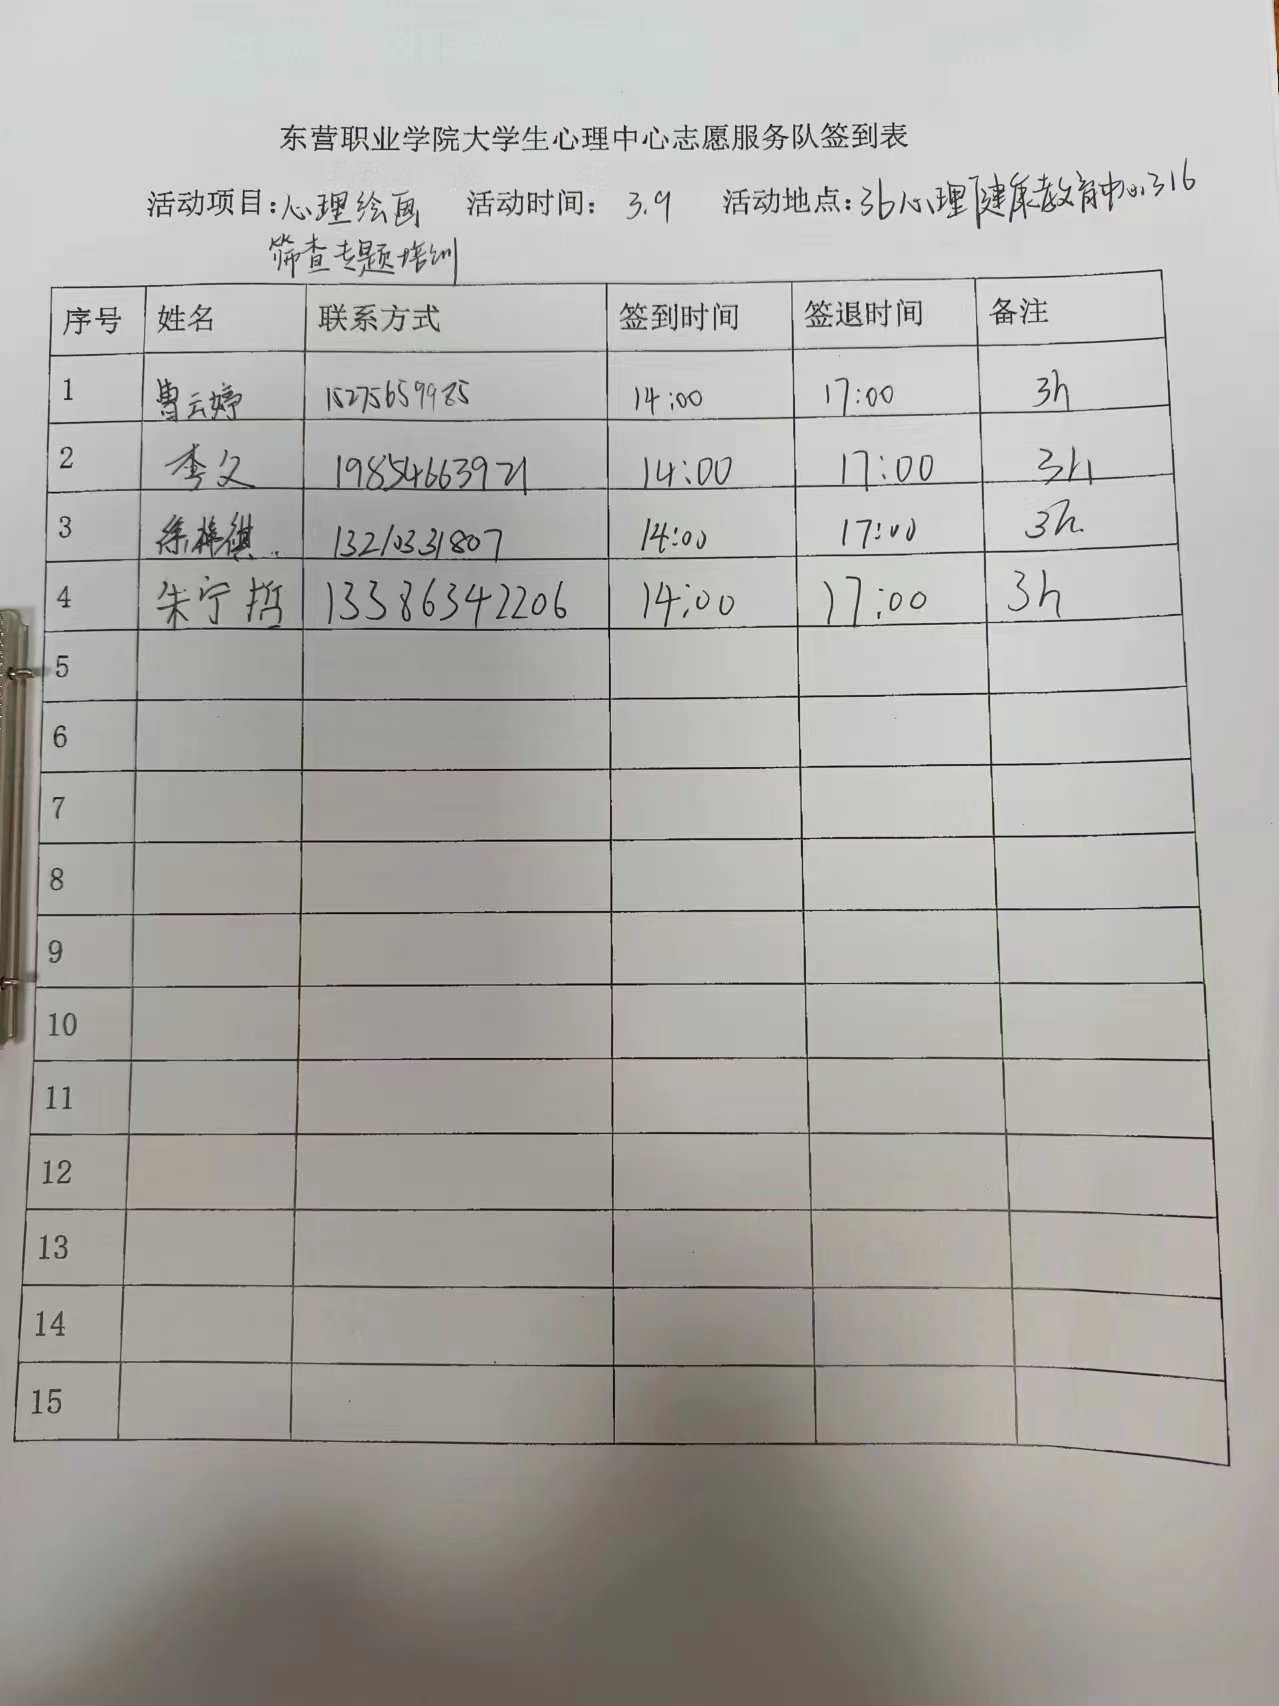 东营职业学院大学生心理中心志愿服务队签到表
活动项目:心理绘画 活动时间: 3.9 活动地点:3b心理健康教育中心316
筛查专题培训
序号 姓名 联系方式 签到时间 签退时间 备注
1 曹云婷 15275659985 14:00 17:00 3h
2 李文 19854663921 14:00 17:00 3h
3 徐 13210331807 14:00 17:00 3h
4 朱宁哲 13386342206 14:00 17:00 3h
5
6
7
8
9
10
11
12
13
14
15